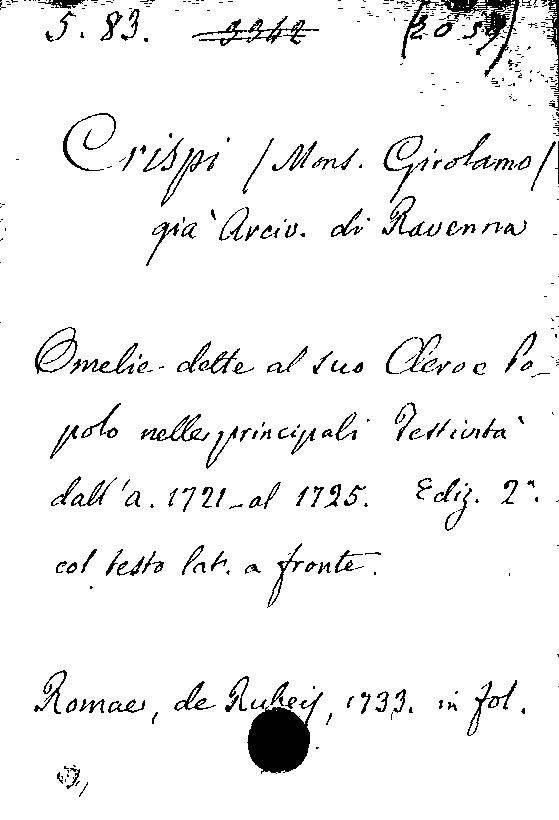 5.83. 3342 (2059)
Crispi /Mons. Girolamo/
già Arciv. di Ravenna
Omelie dette al suo Clero e Po-
polo nelle principali Festività
dall'a. 1721 al 1725. Ediz. 2ª.
col testo lat. a fronte.
Romae, de Rubeis, 1733. in fol.